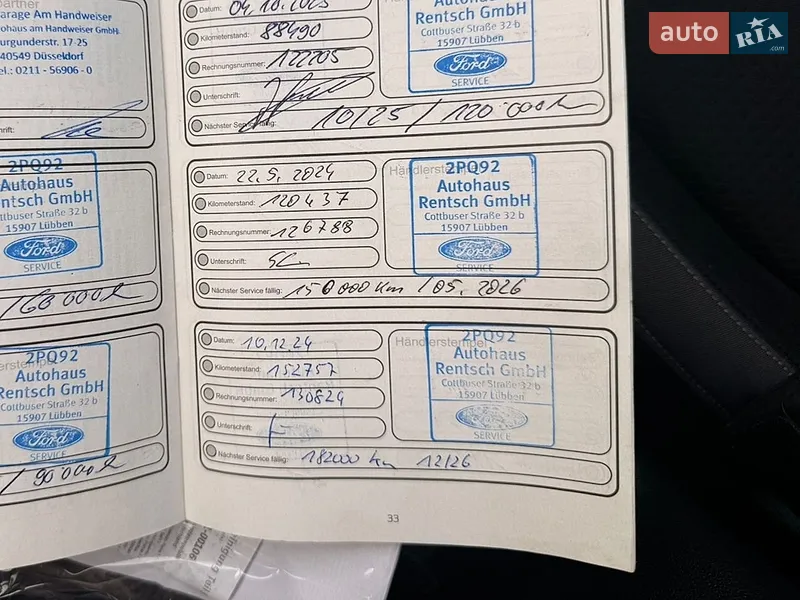 auto RIA .com
artner
arage Am Handweiser
tohaus am Handweiser GmbH
urgunderstr. 17-25
40549 Düsseldorf
el.: 0211 - 56906 - 0
rift:
2PQ92
Autohaus
Rentsch GmbH
Cottbuser Straße 32 b
15907 Lübben
Ford
SERVICE
/60 000
2PQ92
Autohaus
Rentsch GmbH
Cottbuser Straße 32 b
15907 Lübben
Ford
SERVICE
/ 90 000
Datum: 04.10.2023
Kilometerstand: 88490
Rechnungsnummer: 122205
Unterschrift:
Nächster Service fällig: 10/25 / 120 000
Autohaus
Rentsch GmbH
Cottbuser Straße 32 b
15907 Lübben
Ford
SERVICE
Datum: 22.5.2024
Kilometerstand: 120437
Rechnungsnummer: 126788
Unterschrift:
Nächster Service fällig: 150 000 km / 05. 2026
Händlerstempel
2PQ92
Autohaus
Rentsch GmbH
Cottbuser Straße 32 b
15907 Lübben
Ford
SERVICE
Datum: 10.12.24
Kilometerstand: 152757
Rechnungsnummer: 130824
Unterschrift:
Nächster Service fällig: 182000 km 12/26
Händlerstempel
2PQ92
Autohaus
Rentsch GmbH
Cottbuser Straße 32 b
15907 Lübben
SERVICE
33